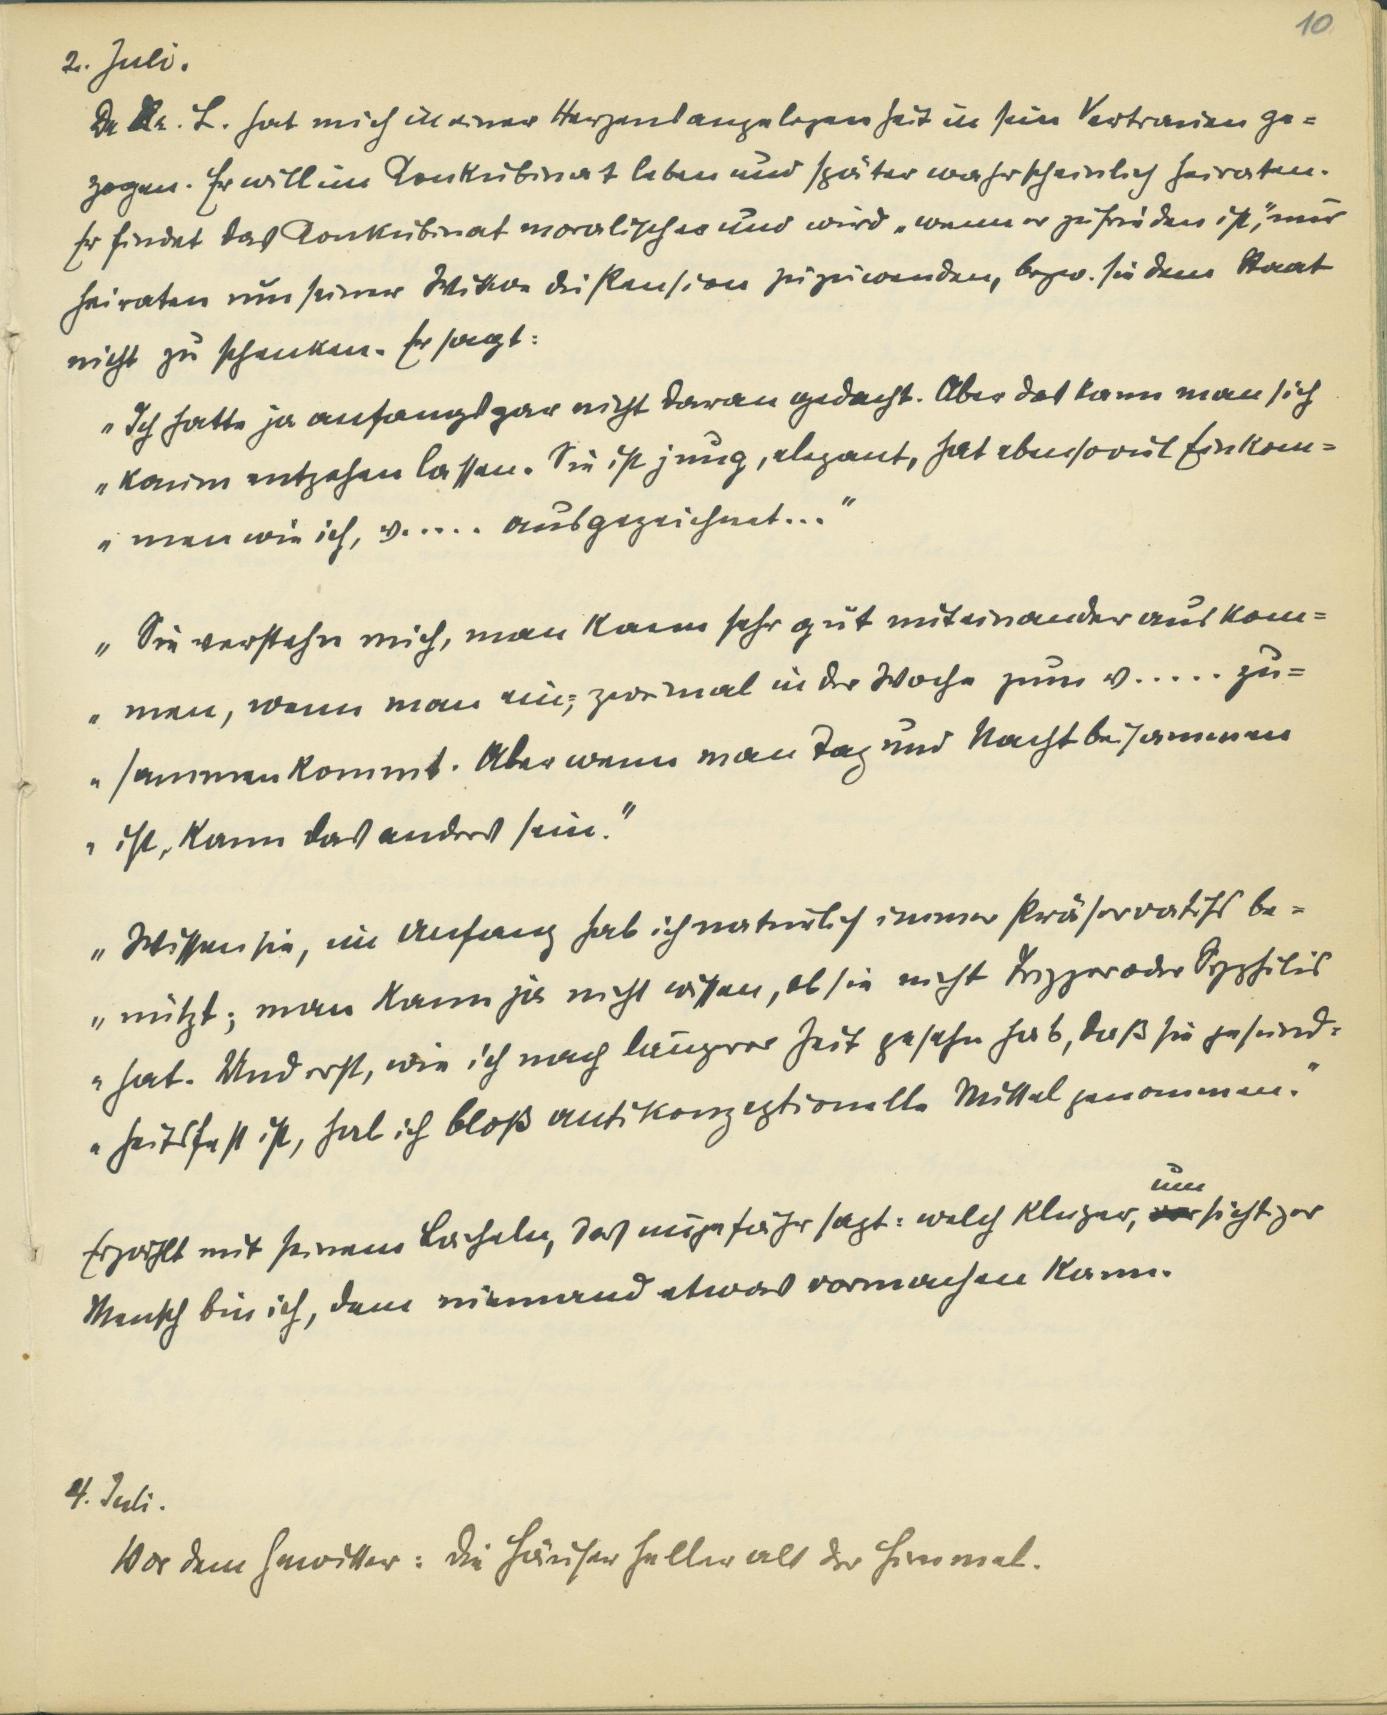 10
2. Juli.
Dr. L. hat mich in einer Herzensangelegenheit in sein Vertrauen ge=
zogen. Er will im Konkubinat leben und später wahrscheinlich heiraten.
Er findet das Konkubinat moralischer und wird „wenn er zufrieden ist," nur
heiraten um seiner Witwe die Pension zuzuwenden, bezw. sie dem Staat
nicht zu schenken. Er sagt:
„Ich hatte ja anfangs gar nicht daran gedacht. Aber das kann man sich
„kaum entgehen lassen. Sie ist jung, elegant, hat ebensoviel Einkom=
„men wie ich, v..... ausgezeichnet..."
„Sie verstehn mich, man kann sehr gut miteinander auskom=
„men, wenn man ein=, zweimal in der Woche zum v..... zu=
„sammenkommt. Aber wenn man Tag und Nacht beisammen
„ist, kann das anders sein."
„Wissen sie, im Anfang hab ich natürlich immer Präservatifs be=
„nützt; man kann ja nicht wissen, ob sie nicht Tripper oder Syphilis
„hat. Und erst, wie ich nach längerer Zeit gesehn hab, daß sie gesund=
„heitsfest ist, hab ich bloß antikonzeptionelle Mittel genommen."
um
Erzählt mit seinem Lächeln, das ungefähr sagt: welch kluger, versichtger
Mensch bin ich, dem niemand etwas vormachen kann.
4. Juli.
Vor dem Gewitter: Die Häuser heller als der Himmel.